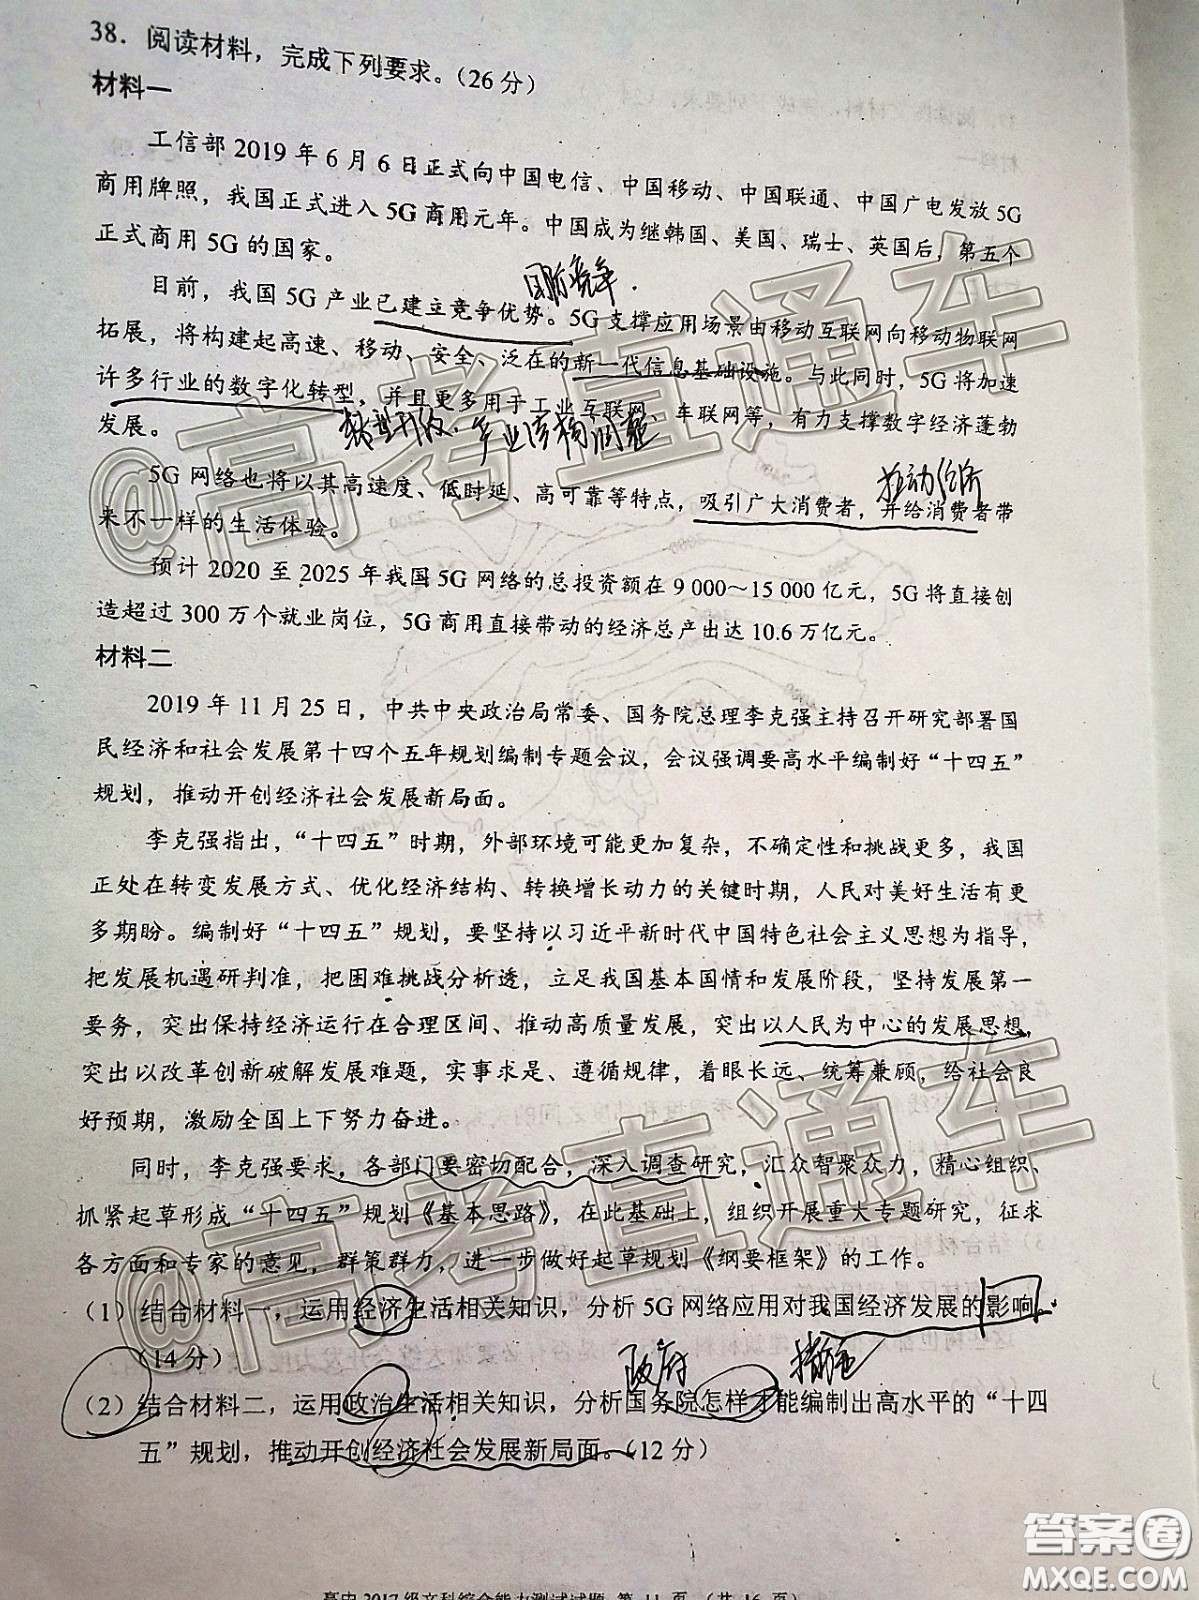 38．阅读材料，完成下列要求。（26分）
材料一
工信部 2019 年 6 月 6 日正式向中国电信、中国移动、中国联通、中国广电发放 5G
商用牌照，我国正式进入 5G 商用元年。中国成为继韩国、美国、瑞士、英国后，第五个
正式商用 5G 的国家。
国际竞争.
目前，我国 5G 产业已建立竞争优势。5G 支撑应用场景由移动互联网向移动物联网
拓展，将构建起高速、移动、安全、泛在的新一代信息基础设施。与此同时，5G 将加速
许多行业的数字化转型，并且更多用于工业互联网、车联网等，有力支撑数字经济蓬勃
发展。
转型升级.产业结构调整
推动经济
5G 网络也将以其高速度、低时延、高可靠等特点，吸引广大消费者，并给消费者带
来不一样的生活体验。
预计 2020 至 2025 年我国 5G 网络的总投资额在 9 000～15 000 亿元，5G 将直接创
造超过 300 万个就业岗位，5G 商用直接带动的经济总产出达 10.6 万亿元。
材料二
2019 年 11 月 25 日，中共中央政治局常委、国务院总理李克强主持召开研究部署国
民经济和社会发展第十四个五年规划编制专题会议，会议强调要高水平编制好“十四五”
规划，推动开创经济社会发展新局面。
李克强指出，“十四五”时期，外部环境可能更加复杂，不确定性和挑战更多，我国
正处在转变发展方式、优化经济结构、转换增长动力的关键时期，人民对美好生活有更
多期盼。编制好“十四五”规划，要坚持以习近平新时代中国特色社会主义思想为指导，
把发展机遇研判准，把困难挑战分析透，立足我国基本国情和发展阶段，坚持发展第一
要务，突出保持经济运行在合理区间、推动高质量发展，突出以人民为中心的发展思想，
突出以改革创新破解发展难题，实事求是、遵循规律，着眼长远、统筹兼顾，给社会良
好预期，激励全国上下努力奋进。
同时，李克强要求，各部门要密切配合，深入调查研究，汇众智聚众力，精心组织、
抓紧起草形成“十四五”规划《基本思路》，在此基础上，组织开展重大专题研究，征求
各方面和专家的意见，群策群力，进一步做好起草规划《纲要框架》的工作。
（1）结合材料一，运用经济生活相关知识，分析 5G 网络应用对我国经济发展的影响。
（14 分）
政府
措施
（2）结合材料二，运用政治生活相关知识，分析国务院怎样才能编制出高水平的“十四
五”规划，推动开创经济社会发展新局面。（12 分）
@高考直通车
@高考直通车
答案圈
MXQE.COM